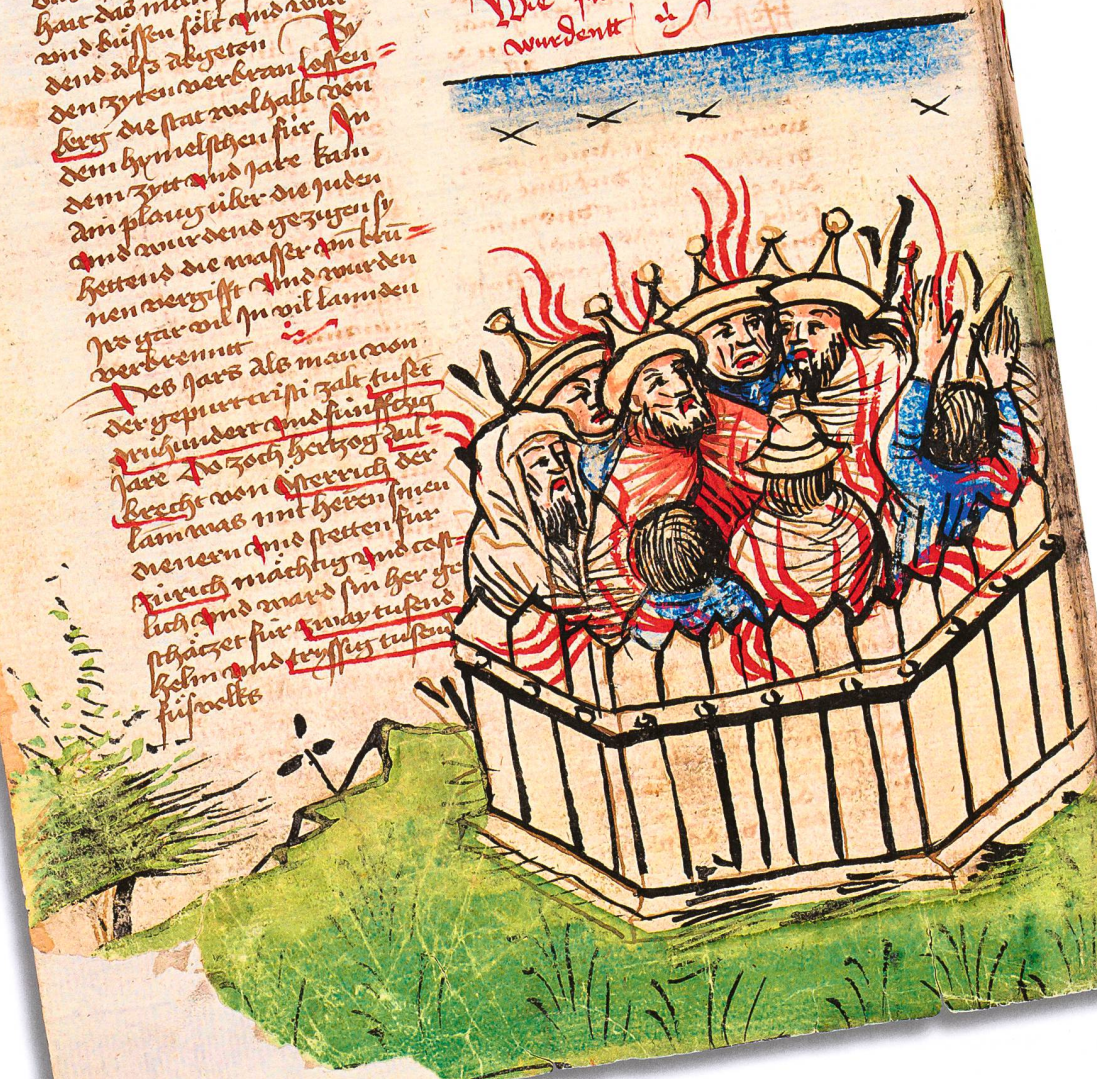 hatt das man
vnd büssen sölt vnd wur
dend also abgeton By
den zyten verbran loffen
berg die stat wol halb von
dem hymelschen für Jn
dem zytt vnd jare kam
Ain plaug über die juden
vnd wurdend gezigen sy
hettend die wasser vnd brū
nen vergifft vnd wurden
Jro gar vil Jn vil lannden
verbrennt
Des jars als man von
der gepurt cristi zalt tuset
drühundert vnd fünffczig
jare Do zoch hertzog Aul
brecht von Österrich der
lam was mit heren sinen
dienern vnd stetten für
Zürich mächtig vnd cost
lich vnd ward sin her ge
schäczet für zway tusend
helm vnd tryssig tusend
füsvolks
Wie
wurdentt